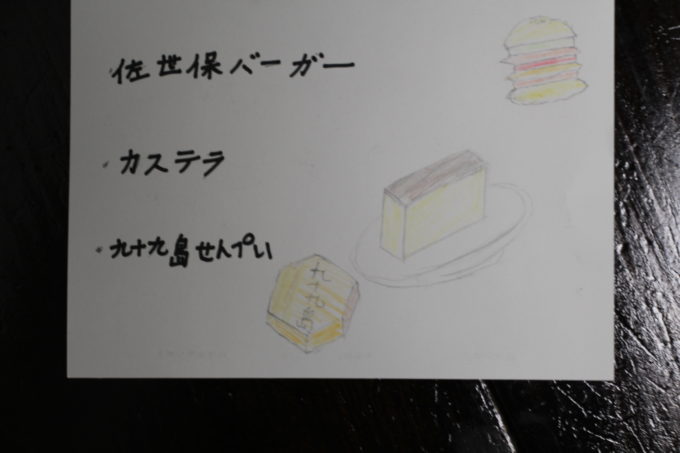 佐世保バーガー
カステラ
九十九島せんぺい
九十九島